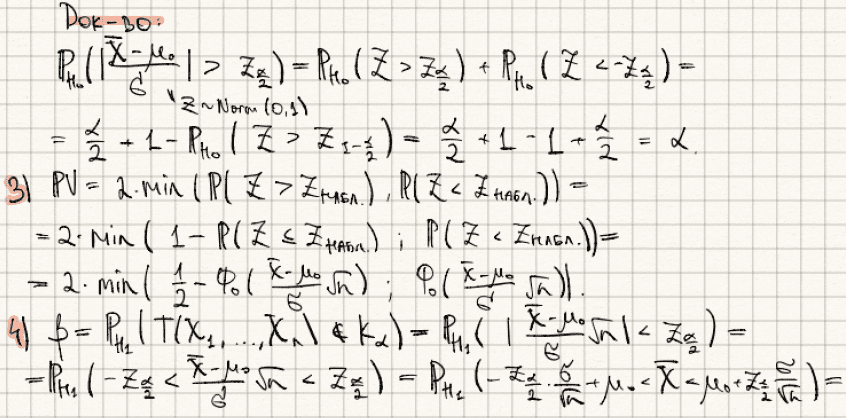 Док-во:
P_{H₀}(|\frac{X̄ - μ₀}{σ}| > z_{\frac{α}{2}}) = P_{H₀}(Z > z_{\frac{α}{2}}) + P_{H₀}(Z < -z_{\frac{α}{2}}) =
Z ~ Norm(0,1)
= \frac{α}{2} + 1 - P_{H₀}(Z > z_{1-\frac{α}{2}}) = \frac{α}{2} + 1 - 1 + \frac{α}{2} = α.
3) PV = 2·min(P(Z > Z_{набл.}), P(Z < Z_{набл.})) =
= 2·min(1 - P(Z ≤ Z_{набл.}); P(Z < Z_{набл.})) =
= 2·min(\frac{1}{2} - Φ₀(\frac{x̄ - μ₀}{σ}√n); Φ₀(\frac{x̄ - μ₀}{σ}√n)).
4) β = P_{H₁}(T(X₁, ..., Xₙ) ∉ K_α) = P_{H₁}(|\frac{X̄ - μ₀}{σ}√n| < z_{\frac{α}{2}}) =
= P_{H₁}(-z_{\frac{α}{2}} < \frac{X̄ - μ₀}{σ}√n < z_{\frac{α}{2}}) = P_{H₁}(-z_{\frac{α}{2}}·\frac{σ}{√n} + μ₀ < X̄ < μ₀ + z_{\frac{α}{2}}\frac{σ}{√n}) =